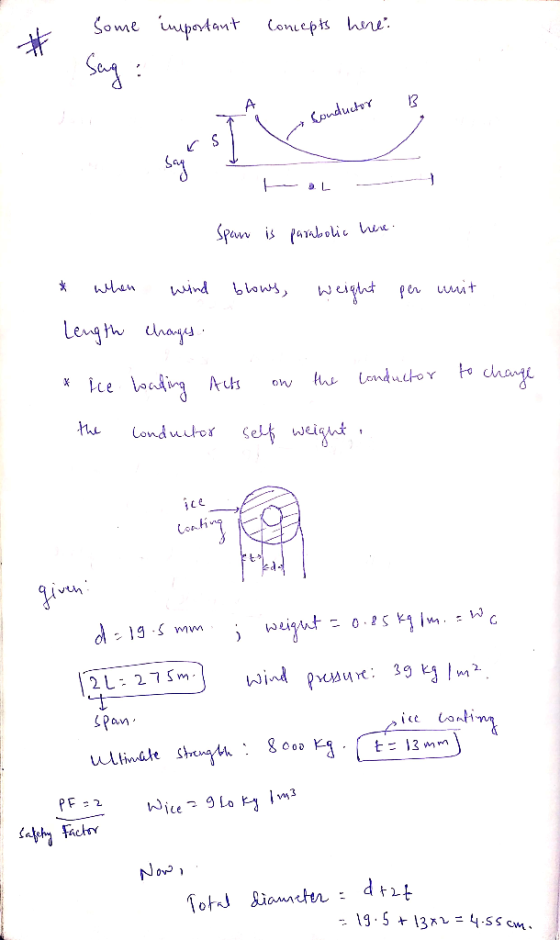 # Some important Concepts here:
Sag :
A B
Conductor
Sag S
2L
Span is parabolic here.
* when wind blows, weight per unit
Length changes.
* Ice loading Acts on the Conductor to change
the Conductor self weight.
ice
coating
t d
given:
d = 19.5 mm ; weight = 0.85 kg/m. = Wc
2L = 275m. Wind pressure: 39 kg/m².
Span. ice coating
Ultimate strength : 8000 kg. t = 13 mm
PF = 2 Wice = 910 kg/m³
Safety Factor
Now,
Total diameter = d+2t
= 19.5 + 13×2 = 4.55 cm.